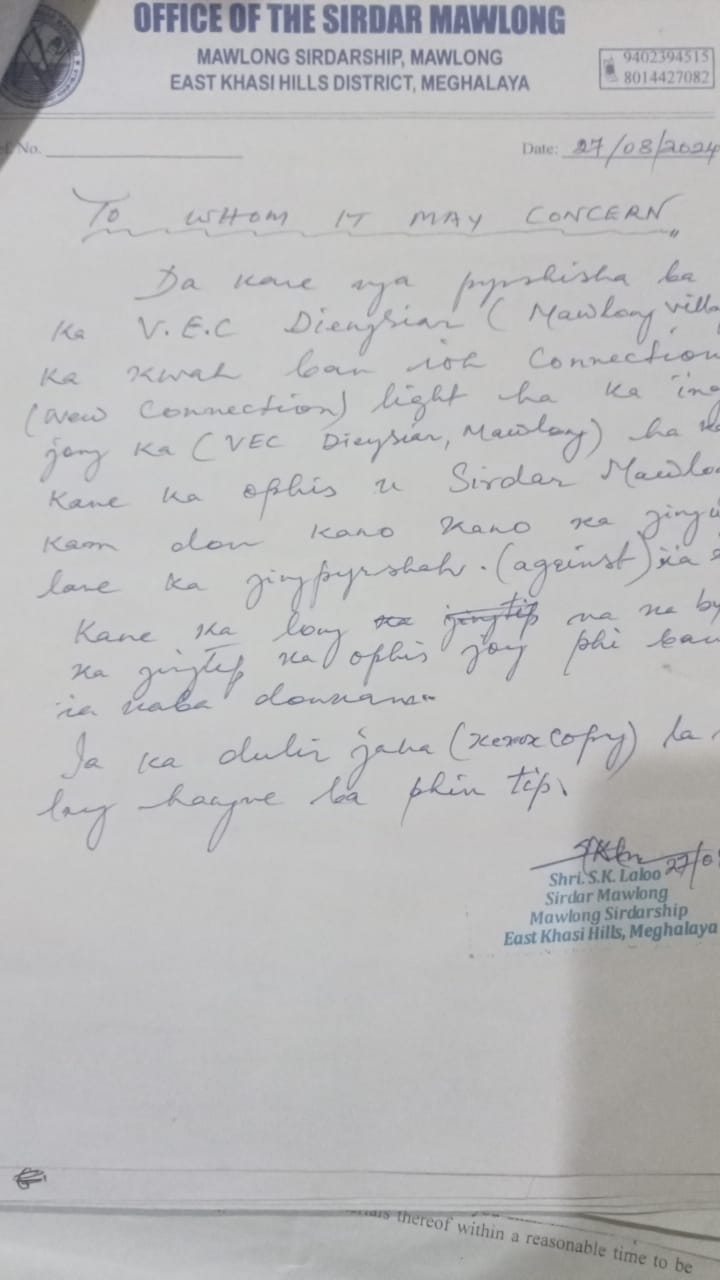 OFFICE OF THE SIRDAR MAWLONG
MAWLONG SIRDARSHIP, MAWLONG
EAST KHASI HILLS DISTRICT, MEGHALAYA
9402394515
8014427082
No.
Date: 27/08/2024
TO WHOM IT MAY CONCERN
Da kane nga pynshisha ba
ka V.E.C Diengsiar ( Mawlong
ka kwah ban ioh Connection
(New Connection) light ha ka
jong ka (VEC Diengsiar, Mawlong) ha
kane ka ophis u Sirdar
kam don kano kano ka
lane ka jingpyrshah. (against) ia
Kane ka long na ka
ka jingtip ka ophis jong phi ban
ia kaba donkam.
Ia ka dulir jaka (xerox copy) la
long hangne ba phin tip.
Shri. S.K. Laloo
Sirdar Mawlong
Mawlong Sirdarship
East Khasi Hills, Meghalaya
thereof within a reasonable time to be